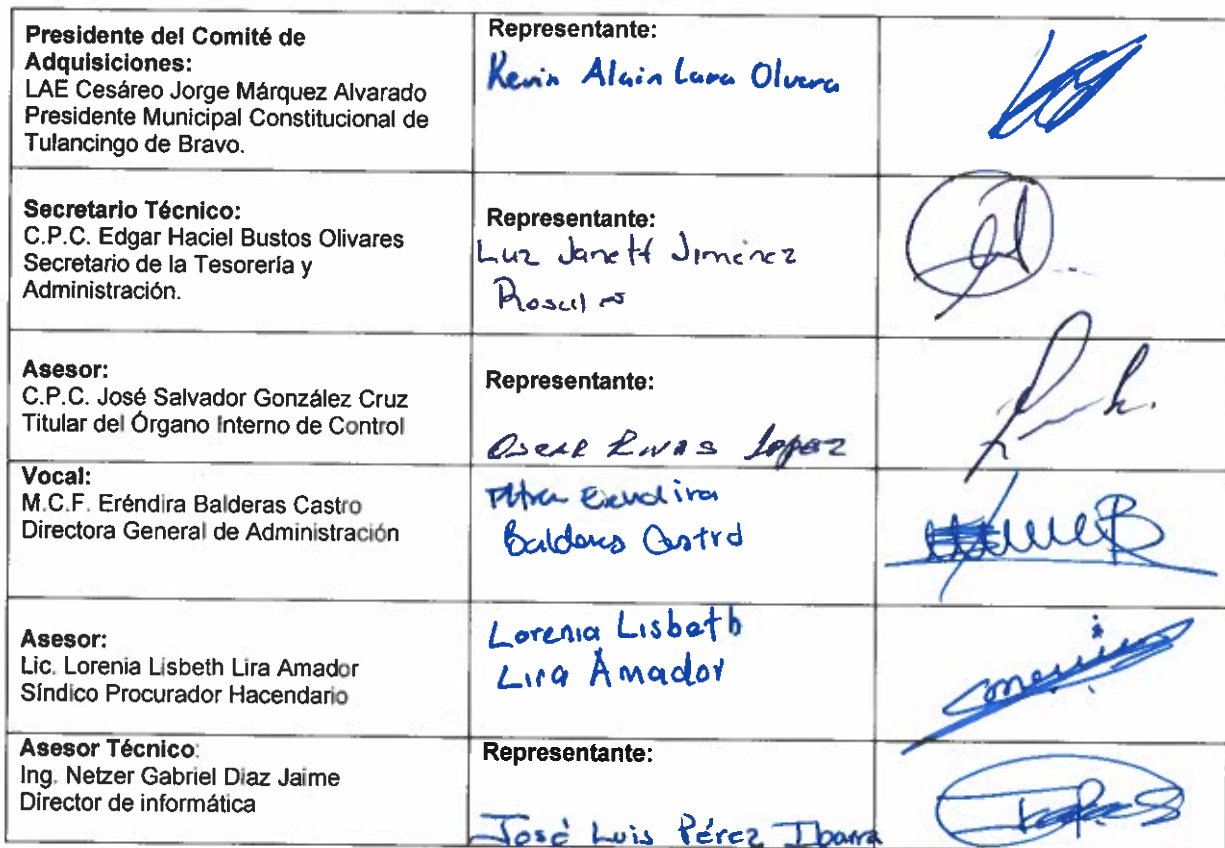 Presidente del Comité de
Adquisiciones:
LAE Cesáreo Jorge Márquez Alvarado
Presidente Municipal Constitucional de
Tulancingo de Bravo.
Representante:
Kevin Alain Lara Olvera
Secretario Técnico:
C.P.C. Edgar Haciel Bustos Olivares
Secretario de la Tesorería y
Administración.
Representante:
Luz Janett Jiménez
Asesor:
C.P.C. José Salvador González Cruz
Titular del Órgano Interno de Control
Representante:
Oscar Rivas Lopez
Vocal:
M.C.F. Eréndira Balderas Castro
Directora General de Administración
Balderas Castro
Asesor:
Lic. Lorenia Lisbeth Lira Amador
Síndico Procurador Hacendario
Lorenia Lisbeth
Lira Amador
Asesor Técnico:
Ing. Netzer Gabriel Diaz Jaime
Director de informática
Representante:
José Luis Pérez Ibarra